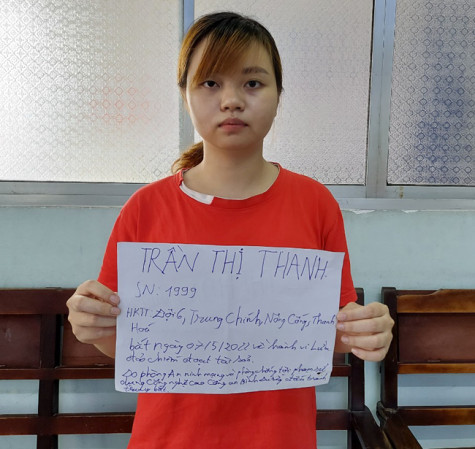 TRẦN THỊ THANH
SN: 1999
HKTT Đội 6, Trung Chính, Nông Cống, Thanh
Hoá
bắt ngày 07/5/2022 về hành vi Lừa
đảo chiếm đoạt tài sản.
Do phòng An ninh mạng và phòng chống tội phạm sử
dụng Công nghệ cao Công an